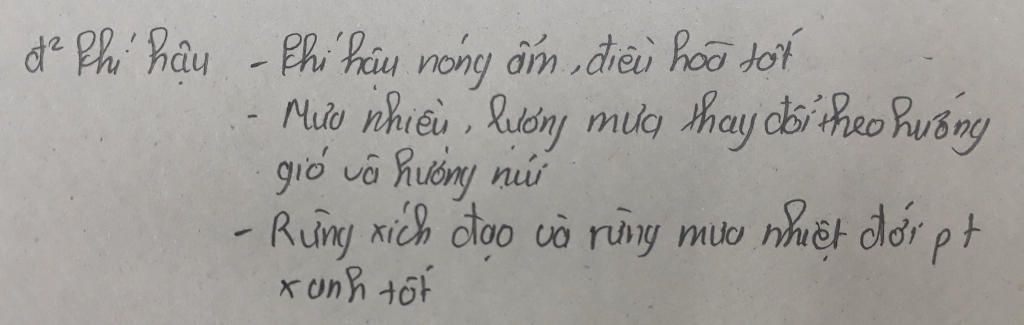 đ² khí hậu - Khí hậu nóng ẩm, điều hoà tốt
- Mưa nhiều, lượng mưa thay đổi theo hướng
gió và hướng núi
- Rừng xích đạo và rừng mưa nhiệt đới pt
xanh tốt